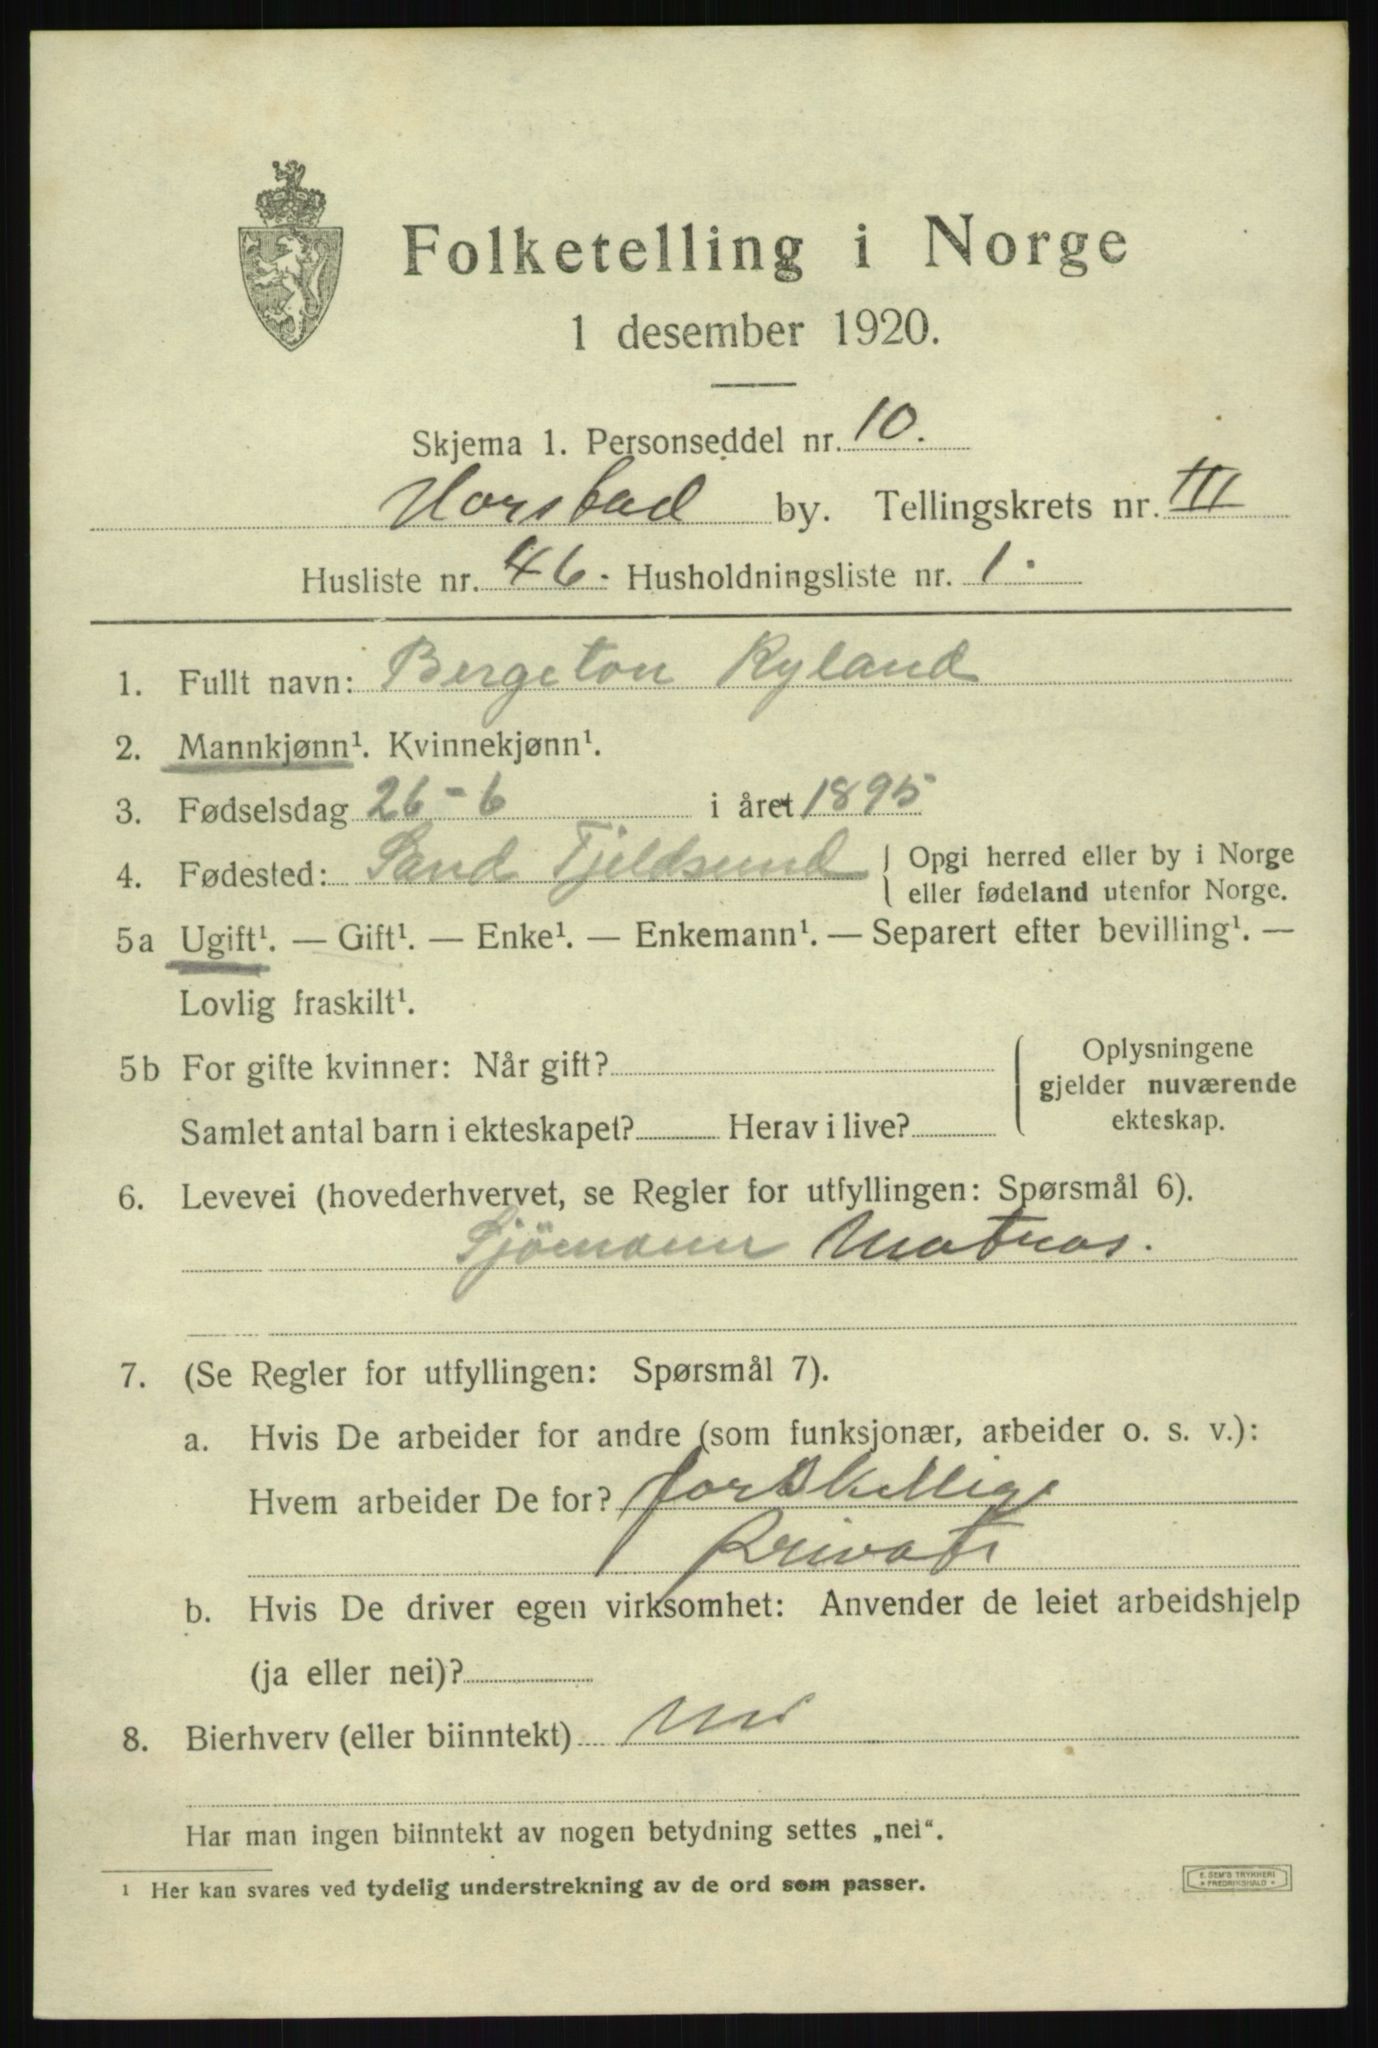 Folketelling i Norge
1 desember 1920.
Skjema 1. Personseddel nr. 10.
Harstad by. Tellingskrets nr. III
Husliste nr. 46. Husholdningsliste nr. 1.
1. Fullt navn: Bergeton Ryland
2. Mannkjønn¹. Kvinnekjønn¹.
3. Fødselsdag 26-6 i året 1895
4. Fødested: Sand Tjeldsund
Opgi herred eller by i Norge
eller fødeland utenfor Norge.
5a Ugift¹. — Gift¹. — Enke¹. — Enkemann¹. — Separert efter bevilling¹. —
Lovlig fraskilt¹.
5b For gifte kvinner: Når gift?
Samlet antal barn i ekteskapet? Herav i live?
Oplysningene
gjelder nuværende
ekteskap.
6. Levevei (hovederhvervet, se Regler for utfyllingen: Spørsmål 6).
Sjömann Matros.
7. (Se Regler for utfyllingen: Spørsmål 7).
a. Hvis De arbeider for andre (som funksjonær, arbeider o. s. v.):
Hvem arbeider De for? forskellige
Private
b. Hvis De driver egen virksomhet: Anvender de leiet arbeidshjelp
(ja eller nei)?
8. Bierhverv (eller biinntekt) Nei
Har man ingen biinntekt av nogen betydning settes „nei“.
¹ Her kan svares ved tydelig understrekning av de ord som passer.
E. SEM'S TRYKKERI
FREDRIKSHALD